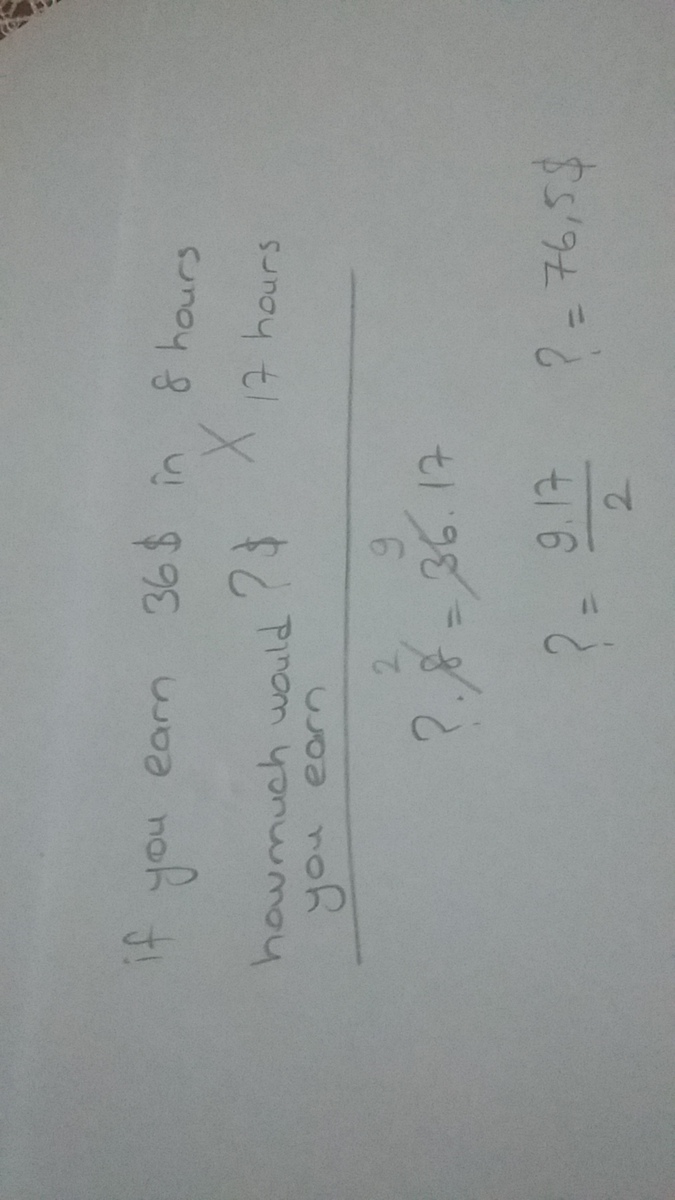 if you earn 36$ in 8 hours
how much would ?$ X 17 hours
you earn
2 9
?.8 = 36.17
?= 9.17/2 ?= 76,5$